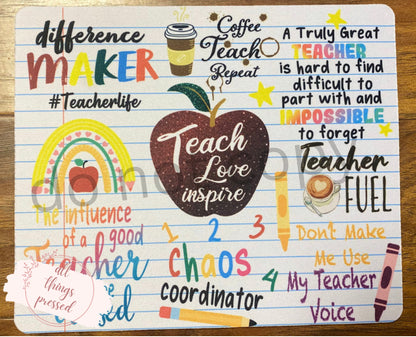 difference
MAKER
#Teacherlife
Coffee
Teach
Repeat
A Truly Great
TEACHER
is hard to find
difficult to
part with and
IMPOSSIBLE
to forget
Teach
Love
inspire
Teacher
FUEL
The influence
of a good
Teacher
1 2 3
chaos
coordinator
4
Don't Make
Me Use
My Teacher
Voice
all
things
pressed